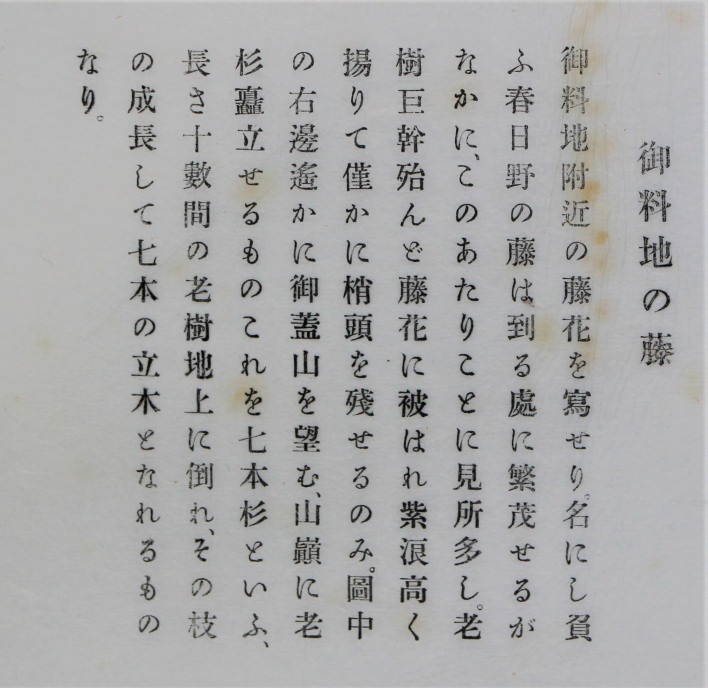 御料地の藤
御料地附近の藤花を寫せり。名にし負
ふ春日野の藤は、到る處に繁茂せるが
なかに、このあたりことに見所多し。老
樹巨幹殆んど藤花に被はれ紫浪高く
揚りて僅かに梢頭を殘せるのみ。圖中
の右邊遙かに御蓋山を望む、山巓に老
杉矗立せるものこれを七本杉といふ、
長さ十數間の老樹地上に倒れ、その枝
の成長して七本の立木となれるもの
なり。